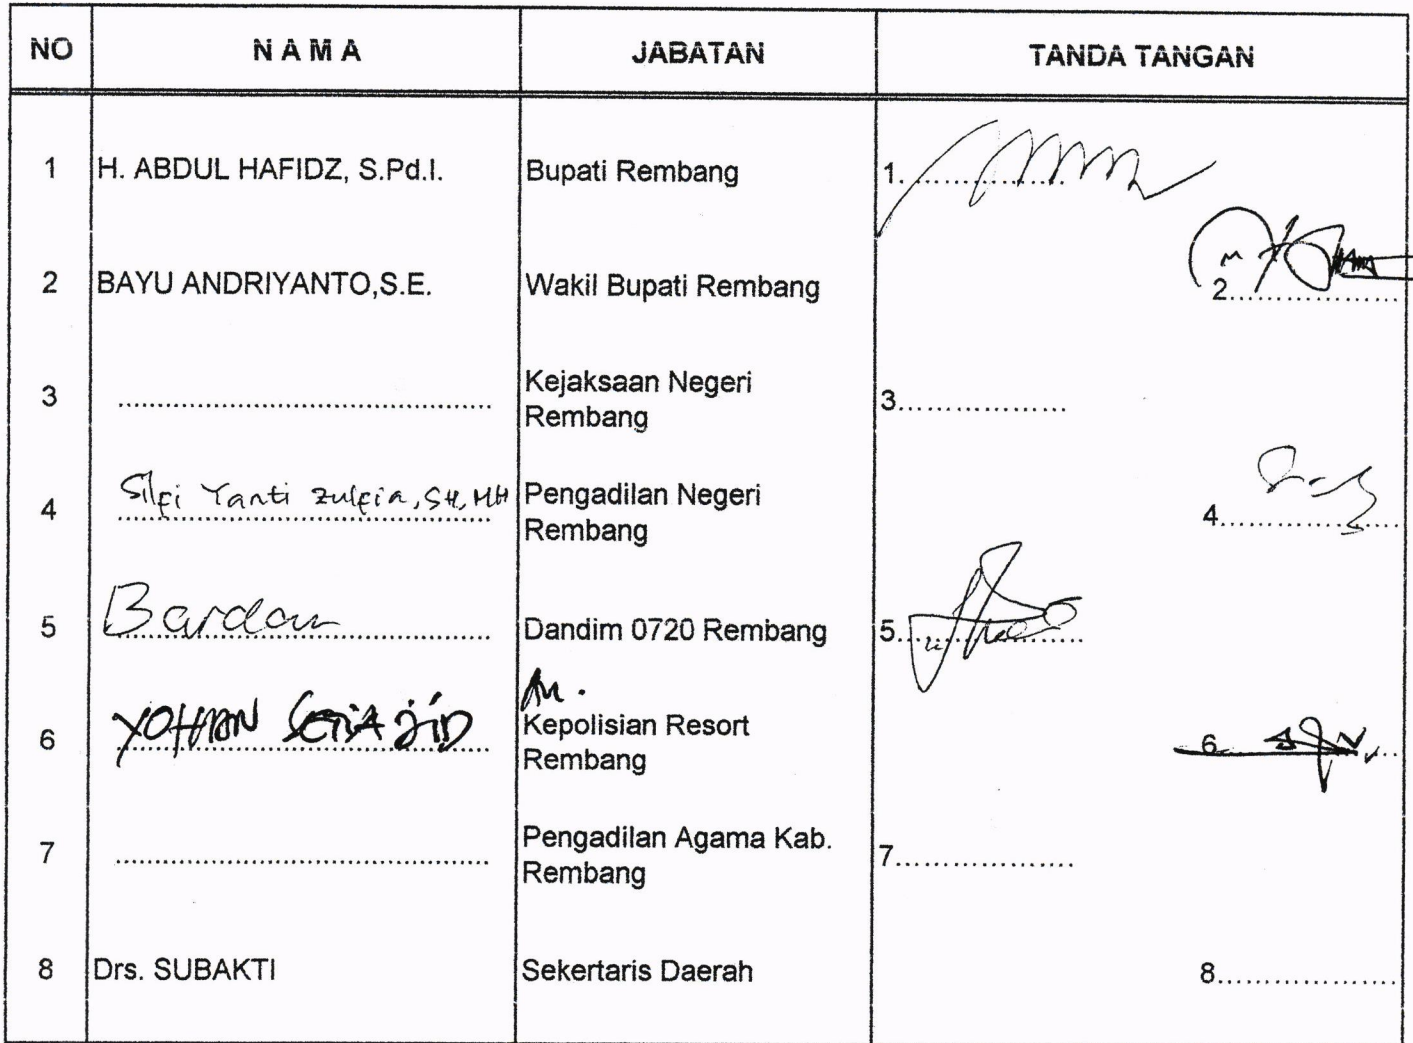 NO NAMA JABATAN TANDA TANGAN
1 H. ABDUL HAFIDZ, S.Pd.I. Bupati Rembang 1..................
2 BAYU ANDRIYANTO,S.E. Wakil Bupati Rembang 2..................
3 .................. Kejaksaan Negeri
Rembang 3..................
4 Silfi Yanti Zulfia, SH, MH Pengadilan Negeri
Rembang 4..................
5 Bardan Dandim 0720 Rembang 5..................
An.
6 YOHAN SETIAJID Kepolisian Resort
Rembang 6..................
7 .................. Pengadilan Agama Kab.
Rembang 7..................
8 Drs. SUBAKTI Sekertaris Daerah 8..................